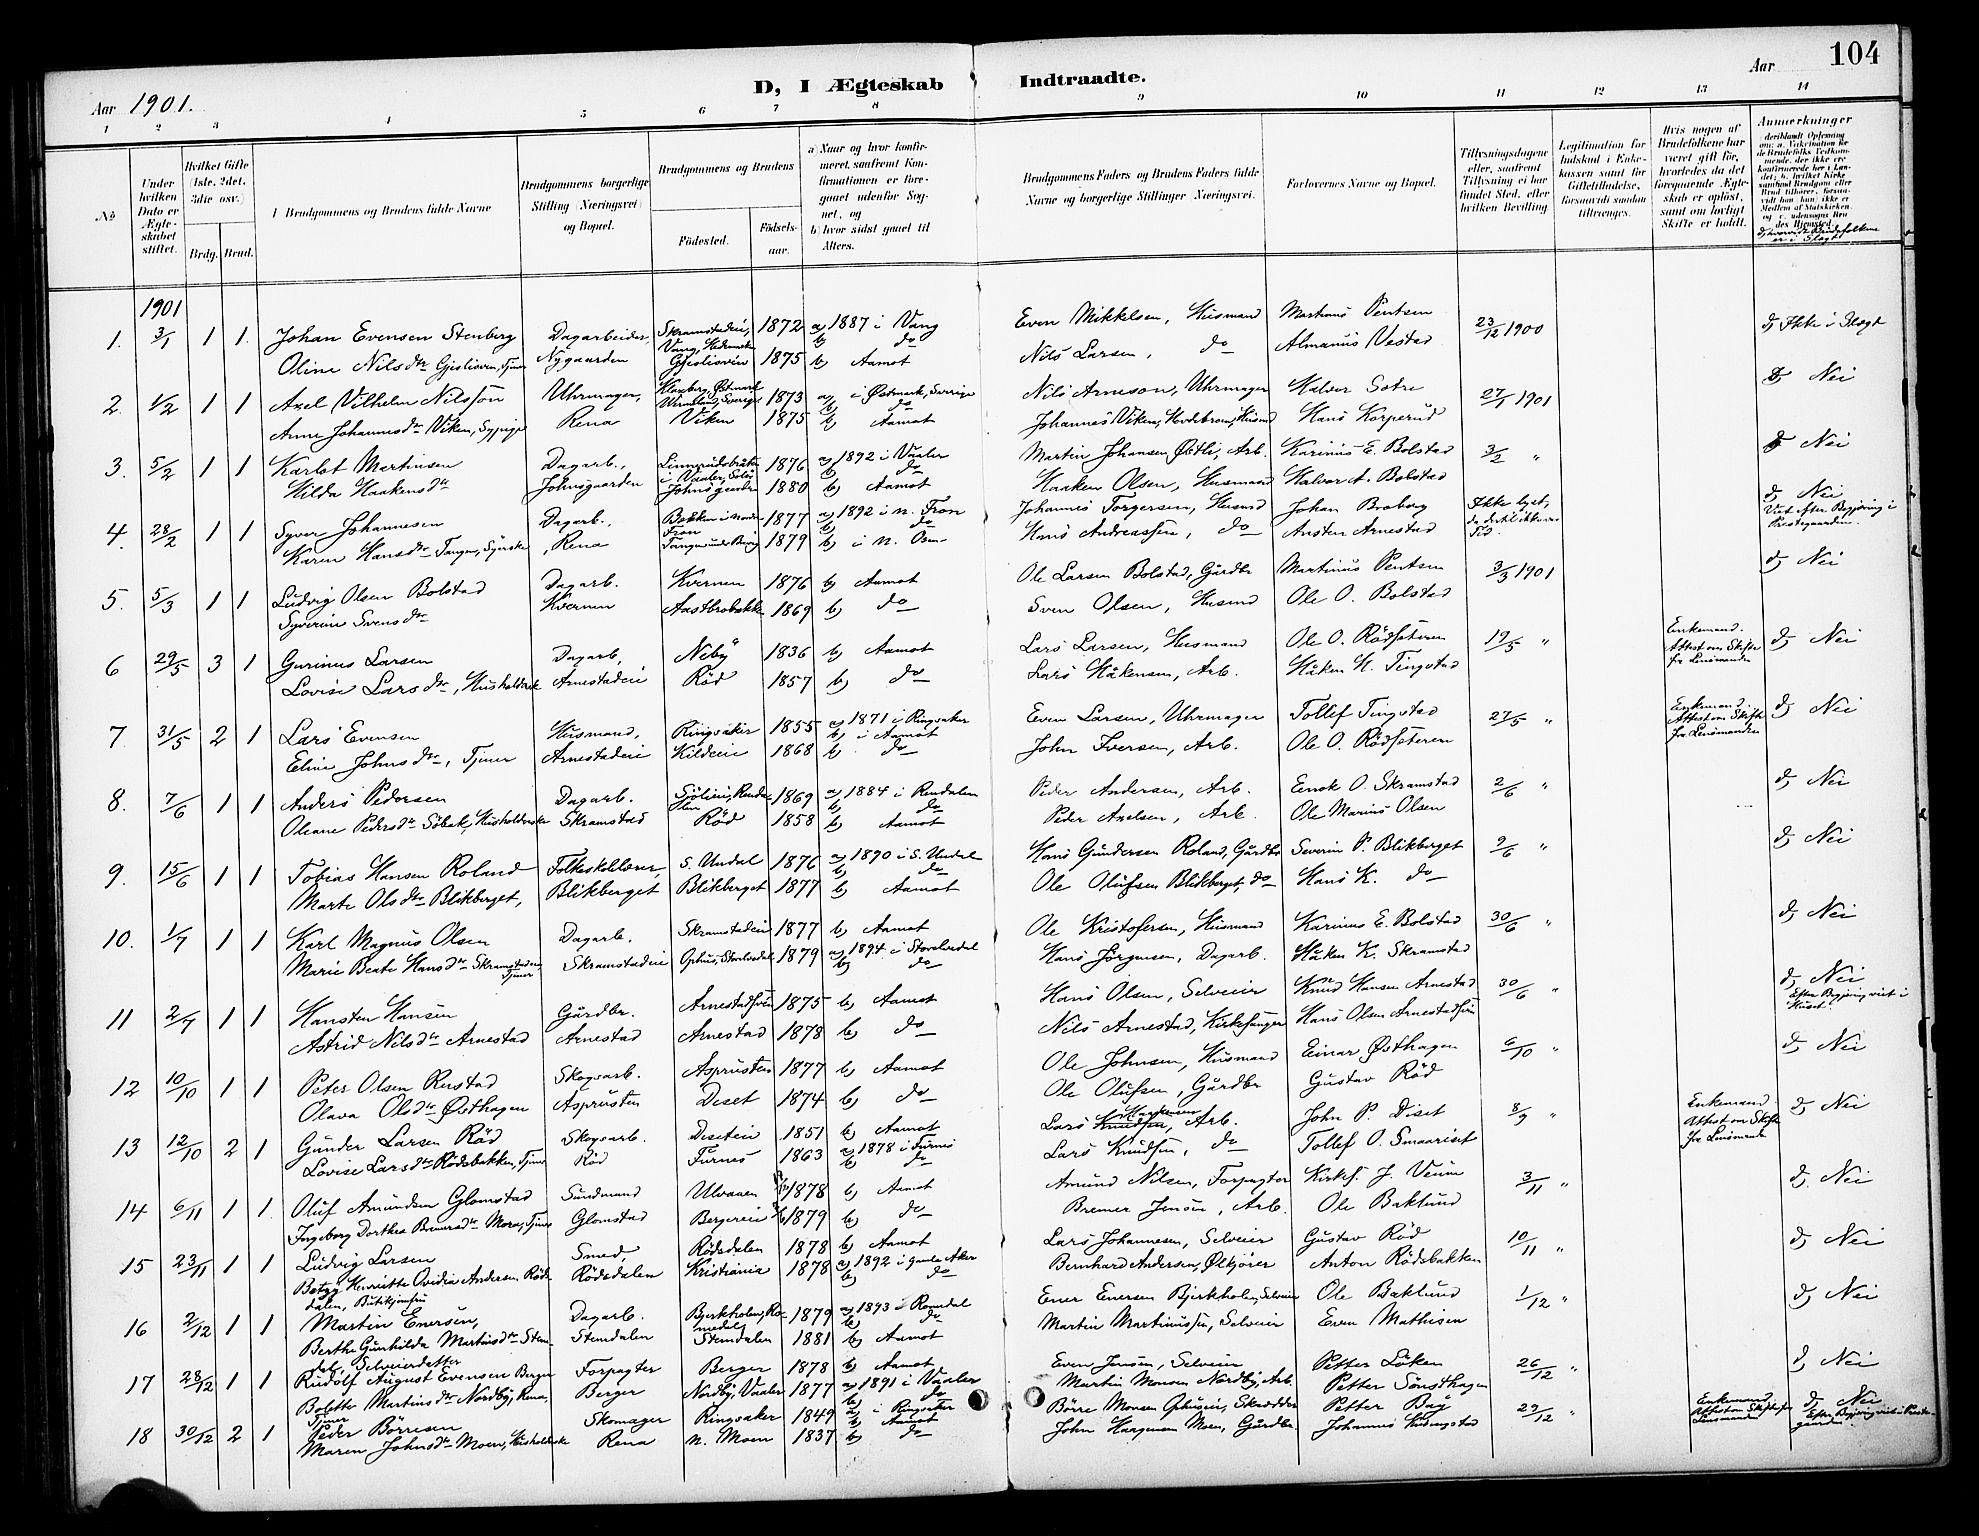 104
Aar 1901.
D, I Ægteskab Indtraadte.
Aar
1 2 3 4 5 6 7 8 9 10 11 12 13 14
No
Under hvilken Dato er Ægteskabet stiftet.
Hvilket Gifte (1ste, 2det, 3die osv.)
Brdg. Brud.
Brudgommens og Brudens fulde Navne
Brudgommens borgerlige Stilling (Næringsvei) og Bopæl.
Brudgommens og Brudens
Fødested. Fødselsaar.
a) Naar og hvor konfirmeret, saafremt Konfirmationen er foregaaet udenfor Sognet, og
b) hvor sidst gaaet til Alters.
Brudgommens Faders og Brudens Faders fulde Navne og borgerlige Stillinger Næringsvei.
Forlovernes Navne og Bopæl.
Tillysningsdagene eller, saafremt Tillysning ei har fundet Sted, efter hvilken Bevilling
Legitimation for Indskud i Enkekassen samt for Giftetilladelse, forsaavidt saadan tiltrænges.
Hvis nogen af Brudefolkene har været gift før, hvorledes da det foregaaende Ægteskab er opløst, samt om lovligt Skifte er holdt.
Anmærkninger
1901
1. 3/1 1 1. Johan Evensen Stenberg Dagarbeider, Skramstadeie, Vang, Hedemarken 1872 a) 1887 i Vang b) do Even Mikkelsen, Husmand Martinus Pentsen 23/12 1900 d) Ikke i Slægt
Oline Nilsdtr Gjøslisveen, Tjener Nygaarden Gjøslisveen 1875 b) Aamot Nils Larsen, do Almanius Vestad
2. 1/2 1 1 Axel Vilhelm Nilsson Uhrmager, Østmark Wermland, Sverige 1873 a) i Østmark, Sverige b) do Nils Arneson, Uhrmager Halvor Sotre 27/1 1901 d) Nei
Anne Johannesdtr Viken, Sypige Rena Viken 1875 b) Aamot Johannes Viken, Husmd Hans Korperud
3. 5/2 1 1 Karlot Martinsen Dagarb., i Vaaler, Solør 1876 a) 1892 i Vaaler b) do Martin Johansen Østli, Arb. Karinus E. Bolstad 3/2 " d) Nei
Hilda Haakensdtr Johnsgaarden Johnsgaarden 1880 b) Aamot Haaken Olsen, Husmand Halvor A. Bolstad
4. 28/2 1 1 Syver Johannesen Dagarb., Bakken i Nordre Fron 1877 a) 1892 i N. Fron b) do Johannes Torgersen, Husmd Johan Broberg Ikke lyst, da dertil ikke var Tid. d) Nei Viet efter Begjæring i Præstegaarden.
Karen Hansdtr Tangen, Syerske, Rena 1879 b) i N. Osen Hans Andreassen, do Austen Arnestad
5. 5/3 1 1 Ludvig Olsen Bolstad Dagarb. Kvernen 1876 b) Aamot Ole Larsen Bolstad, Gårdbr Martinus Pentsen 3/3 1901 d) Nei
Syverine Svensdtr Kvernen Aastbrobakke 1869 b) do Sven Olsen, Husmd Ole O. Bolstad
6 29/5 3 1 Gurinus Larsen Dagarb, Neby 1836 b) Aamot Lars Larsen, Husmand Ole O. Rödseteren 19/5 " Enkemand. Attest om Skifte fra Lensmanden d) Nei
Lovise Larsdtr, Husholderske Arnestadeie Röd 1857 b) do Lars Håkensen, Arb. Håken H. Tingstad
7. 31/5 2 1 Lars Evensen Husmand, Ringsaker 1855 a) 1871 i Ringsaker b) i Aamot Even Larsen, Uhrmager Tollef Tingstad 27/5 " Enkemand. Attest om Skifte fra Lensmanden d) Nei
Eline Johnsdtr, Tjener Arnestadeie Kildeeie 1868 b) do John Iversen, Arb. Ole O. Rödseteren
8. 7/6 1 1 Anders Pedersen Dagarb. Sölien, Rendalen 1869 a) 1884 i Rendalen b) do Peder Andersen, Arb. Enok O. Skramstad 2/6 " d) Nei
Oleane Pedersdtr Söbak, Husholderske Skramstad Röd 1858 b) Aamot Peder Axelsen, Arb. Ole Marius Olsen
9. 15/6 1 1 Tobias Hansen Roland Folkeskolelærer, S. Undal 1876 a) 1890 i S. Undal b) do Hans Gundersen Roland, Gårdbr Severin P. Blikberget 9/6 " d) Nei
Marte Olsdtr Blikberget, Blikberget Blikberget 1877 b) Aamot Ole Olufsen Blikberget, do Hans K. do
10. 1/7 1 1 Karl Magnus Olsen Dagarb. Skramstadeie 1877 b) Aamot Ole Kristofersen, Husmand Karinus E. Bolstad 30/6 " d) Nei
Marie Beate Hansdtr Skramstadeie, Tjener Skramstadeie Ophus, Storelvedal 1879 a) 1894 i Storelvedal b) do Hans Jörgensen, Dagarb. Håken K. Skramstad
11 2/7 1 1 Hansten Hansen Gårdbr. Arnestadsveen 1875 b) Aamot Hans Olsen, Selveier Knud Hansen Arnestad 30/6 " d) Nei Efter Begjæring viet i Huset.
Astrid Nilsdtr Arnestad Arnestad Arnestad 1878 b) do Nils Arnestad, Kirkesanger Hans Olsen Arnestadsveen
12 10/10 1 1 Peter Olsen Rustad Skogsarb. Asprusten 1877 b) Aamot Ole Johnsen, Husmand Einar Østhagen 6/10 " d) Nei
Olava Olsdtr Østhagen Asprusten Deset 1874 b) do Ole Olufsen, Gårdbr Gustav Röd
13 12/10 2 1 Gunder Larsen Röd Skogsarb. Deseteie 1851 b) Aamot Lars Knudsen, Arb. John P. Diset 8/9 " Enkemand Attest om Skifte fra Lensmanden d) Nei
Lovise Larsdtr Rödsbakken, Tjener Röd Furnes 1863 a) 1878 i Furnes b) do Lars Knudsen, do Tollef O. Smaariset
14 6/11 1 1 Oluf Amundsen Glomstad Sundmand Ulvaaen 1878 b) Aamot Amund Nilsen, Forpagter Kirkes. J. Veum 3/11 " d) Nei
Ingeborg Dorthea Bremersdtr Mora, Tjener Glomstad Bergereie 1879 b) do Bremer Jensen, Arb. Ole Baklund
15 23/11 1 1 Ludvig Larsen Smed, Rödsdalen 1878 b) Aamot Lars Johannesen, Selveier Gustav Röd 10/11 " d) Nei
Betzy Henriette Ovidia Andersen, Rödsdalen, Butikjomfru Rödsdalen Kristiania 1878 a) 1892 i gamle Aker b) do Bernhard Andersen, Ølkjører Anton Rödsbakken
16 2/12 1 1 Martin Enersen, Dagarb. Bjerkholen, Romedal 1879 a) 1893 i Romedal b) do Ener Enersen Bjerkholen, Selveier Ole Baklund 1/12 " d) Nei
Berthe Gunhilda Martinsdtr Stemdal, Selveierdatter Stemdalen Stemdalen 1881 b) Aamot Martin Martinussen, Selveier Even Mathisen
17 28/12 1 1 Rudolf August Evensen Berger Forpagter Berger 1878 b) Aamot Even Jensen, Selveier Petter Löken 26/12 " d) Nei
Bolette Martinsdtr Nordby, Rena, Tjener Berger Nordby, Vaaler 1877 a) 1891 i Vaaler b) do Martin Monsen Nordby, Arb. Petter Sönsthagen
18 30/12 2 1 Peder Börresen Skomager Ringsaker 1849 a) i Ringsaker b) Aamot Börre Monsen, Skrædder Petter Bay 29/12 " Enkemand. Attest om Skifte fra Lensmanden d) Nei Efter Begjæring viet i Præstegaarden.
Maren Johnsdtr Moen, Husholderske Rena N. Moen 1837 b) do John Haagensen Moen, Gårdbr.